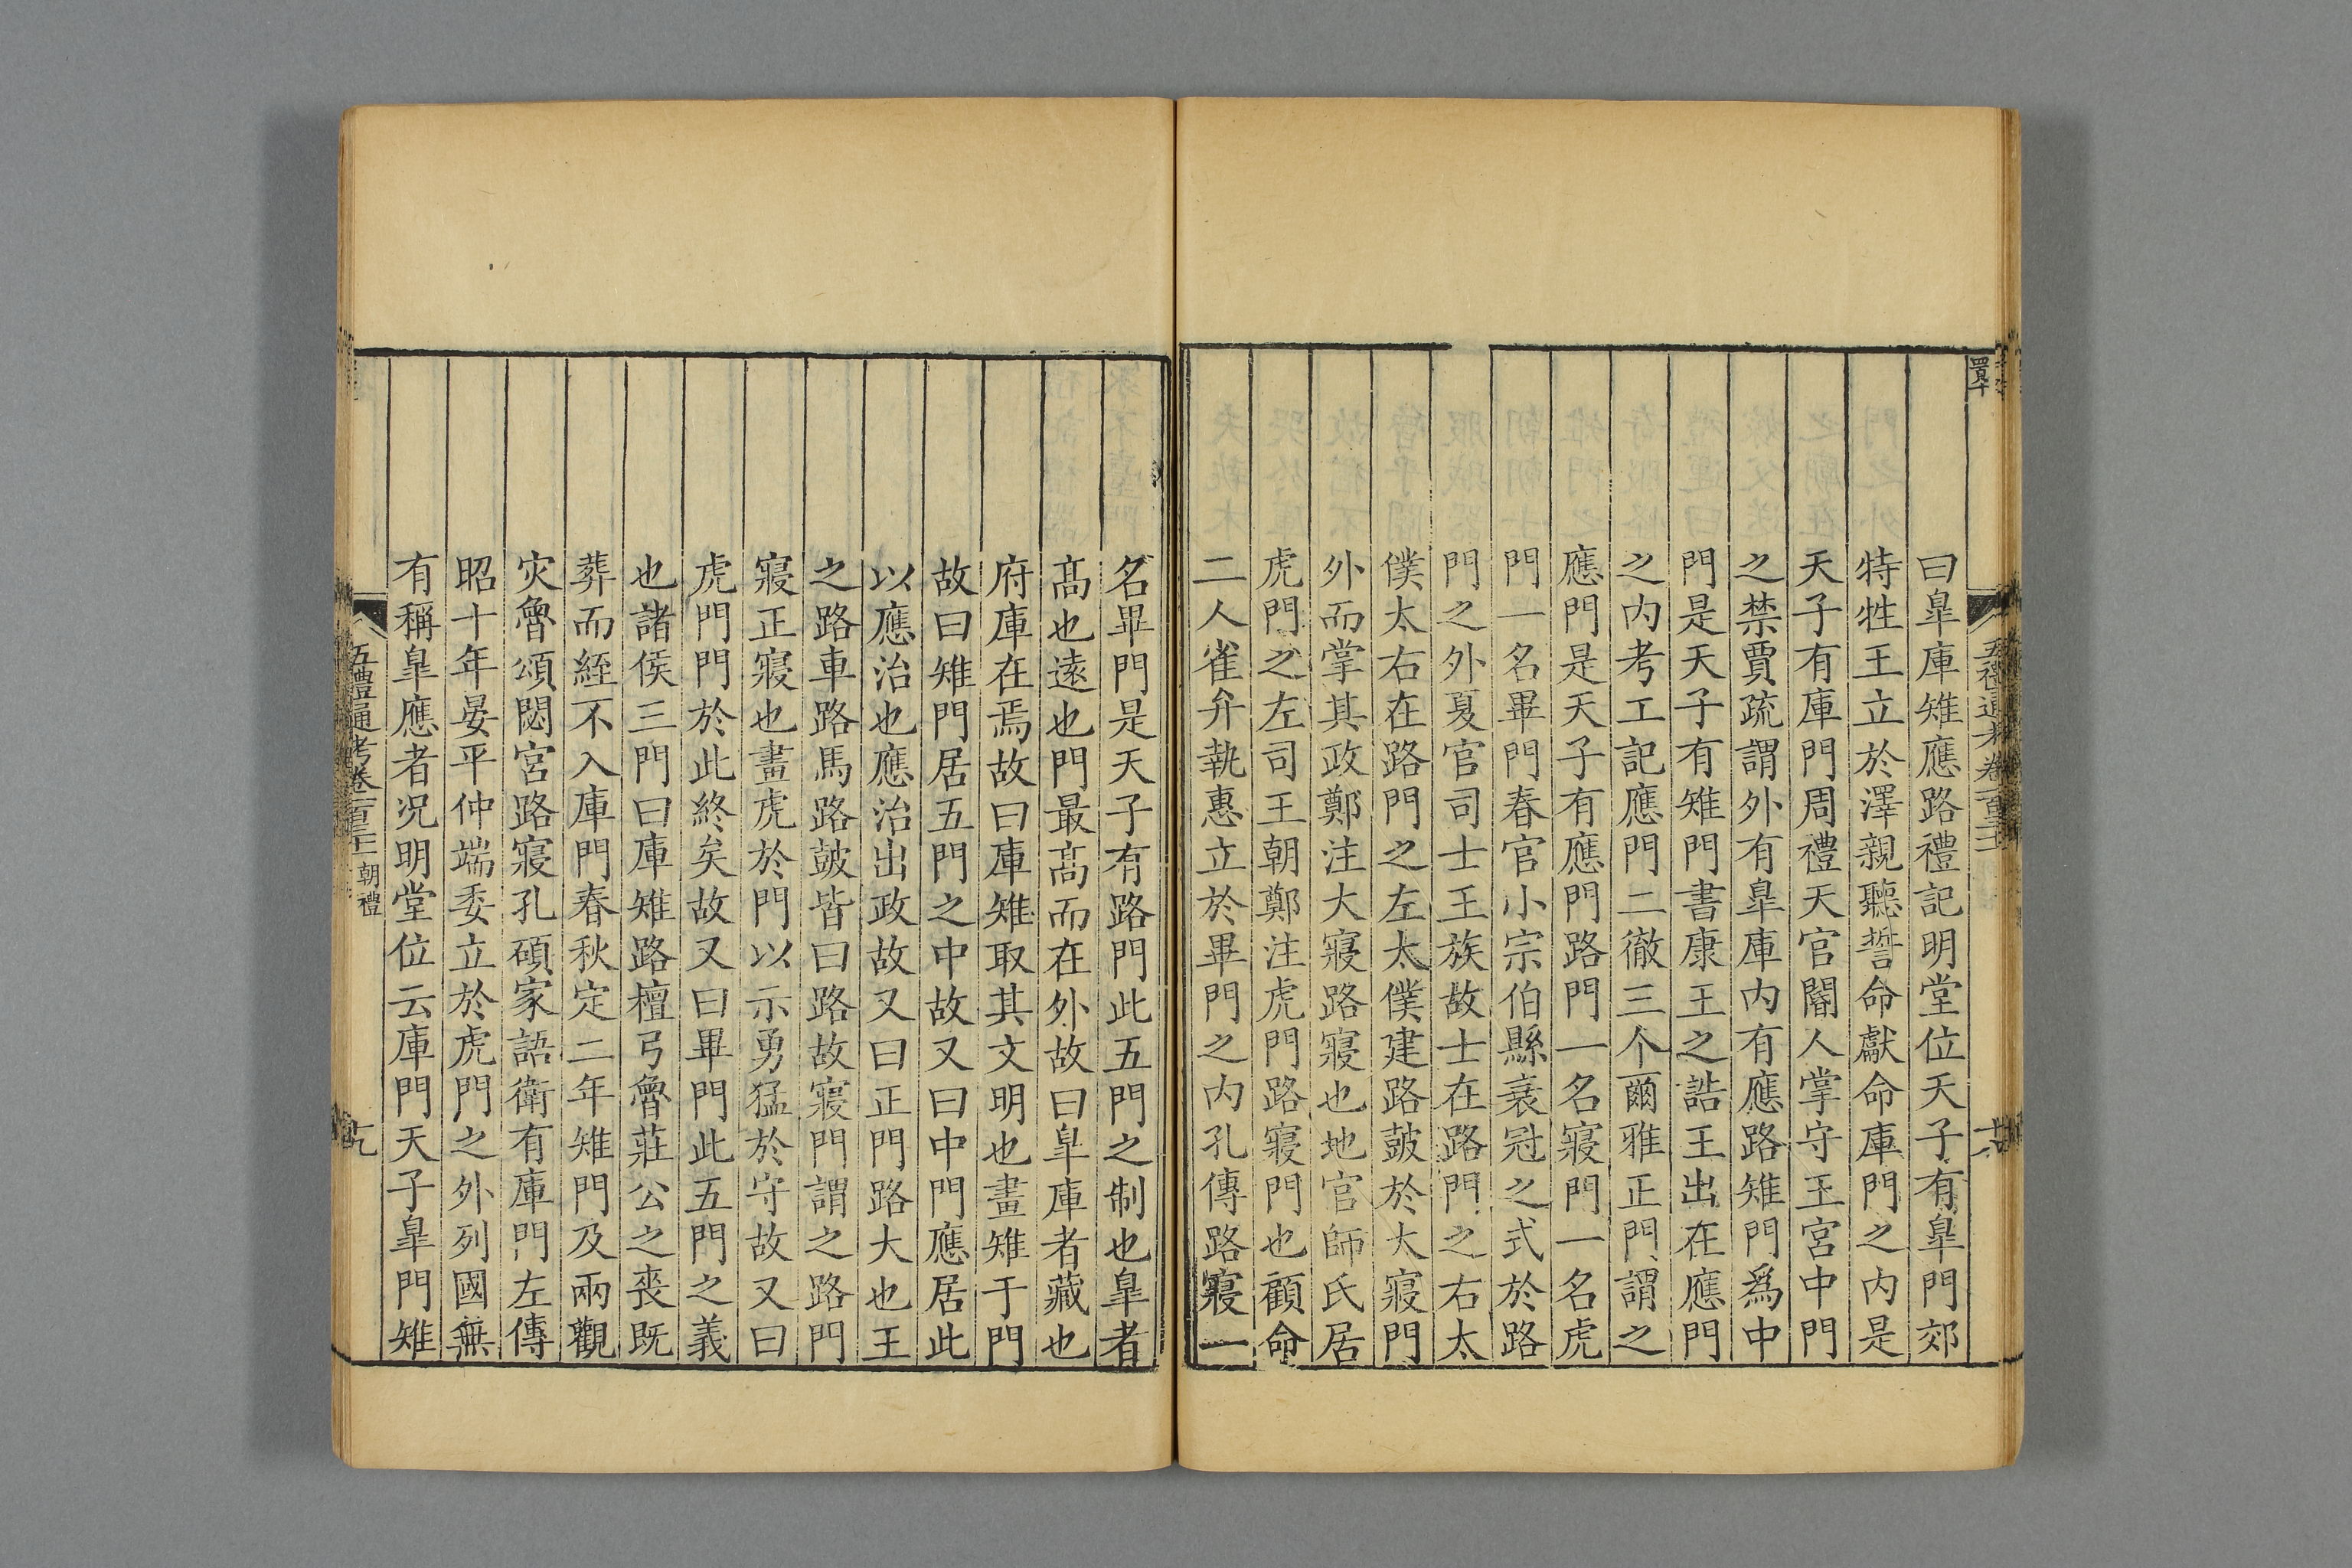 曰臯庫雉應路禮記明堂位天子有臯門郊
特牲王立於澤親聽誓命獻命庫門之内是
天子有庫門周禮天官閽人掌守王宮中門
之禁賈疏謂外有臯庫内有應路雉門爲中
門是天子有雉門書康王之誥王出在應門
之内考工記應門二徹三个爾雅正門謂之
應門是天子有應門路門一名寢門一名虎
門一名畢門春官小宗伯縣衰冠之式於路
門之外夏官司士王族故士在路門之右太
僕太右在路門之左太僕建路鼓於大寢門
外而掌其政鄭注大寢路寢也地官師氏居
虎門之左司王朝鄭注虎門路寢門也顧命
二人雀弁執惠立於畢門之内孔傳路寢一
名畢門是天子有路門此五門之制也臯者
髙也遠也門最髙而在外故曰臯庫者藏也
府庫在焉故曰庫雉取其文明也畫雉于門
故曰雉門居五門之中故又曰中門應居此
以應治也應治出政故又曰正門路大也王
之路車路馬路鼓皆曰路故寢門謂之路門
寢正寢也畫虎於門以示勇猛於守故又曰
虎門門於此終矣故又曰畢門此五門之義
也諸侯三門曰庫雉路檀弓魯莊公之喪既
葬而絰不入庫門春秋定二年雉門及兩觀
灾魯頌閟宮路寢孔碩家語衛有庫門左傳
昭十年晏平仲端委立於虎門之外列國無
有稱臯應者况明堂位云庫門天子臯門雉
五禮通考卷一百三十一 朝禮